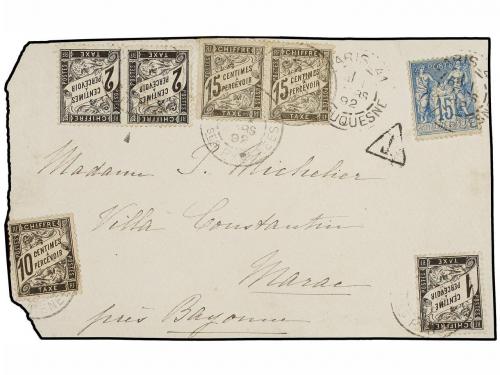 CHIFFRE
2
CENTIMES
À
PERCEVOIR
TAXE
POSTES
CHIFFRE
2
CENTIMES
À
PERCEVOIR
TAXE
CHIFFRE
15
CENTIMES À
PERCEVOIR
TAXE
CHIFFRE
15
CENTIMES À
PERCEVOIR
TAXE
PARIS
92
DUQUESNE
15
PARIS
92
T
Madame J. Michelier
Villa Constantin
Marac
près Bayonne
CHIFFRE
10
CENTIMES À
PERCEVOIR
TAXE
CHIFFRE
1
CENTIME
À
PERCEVOIR
TAXE